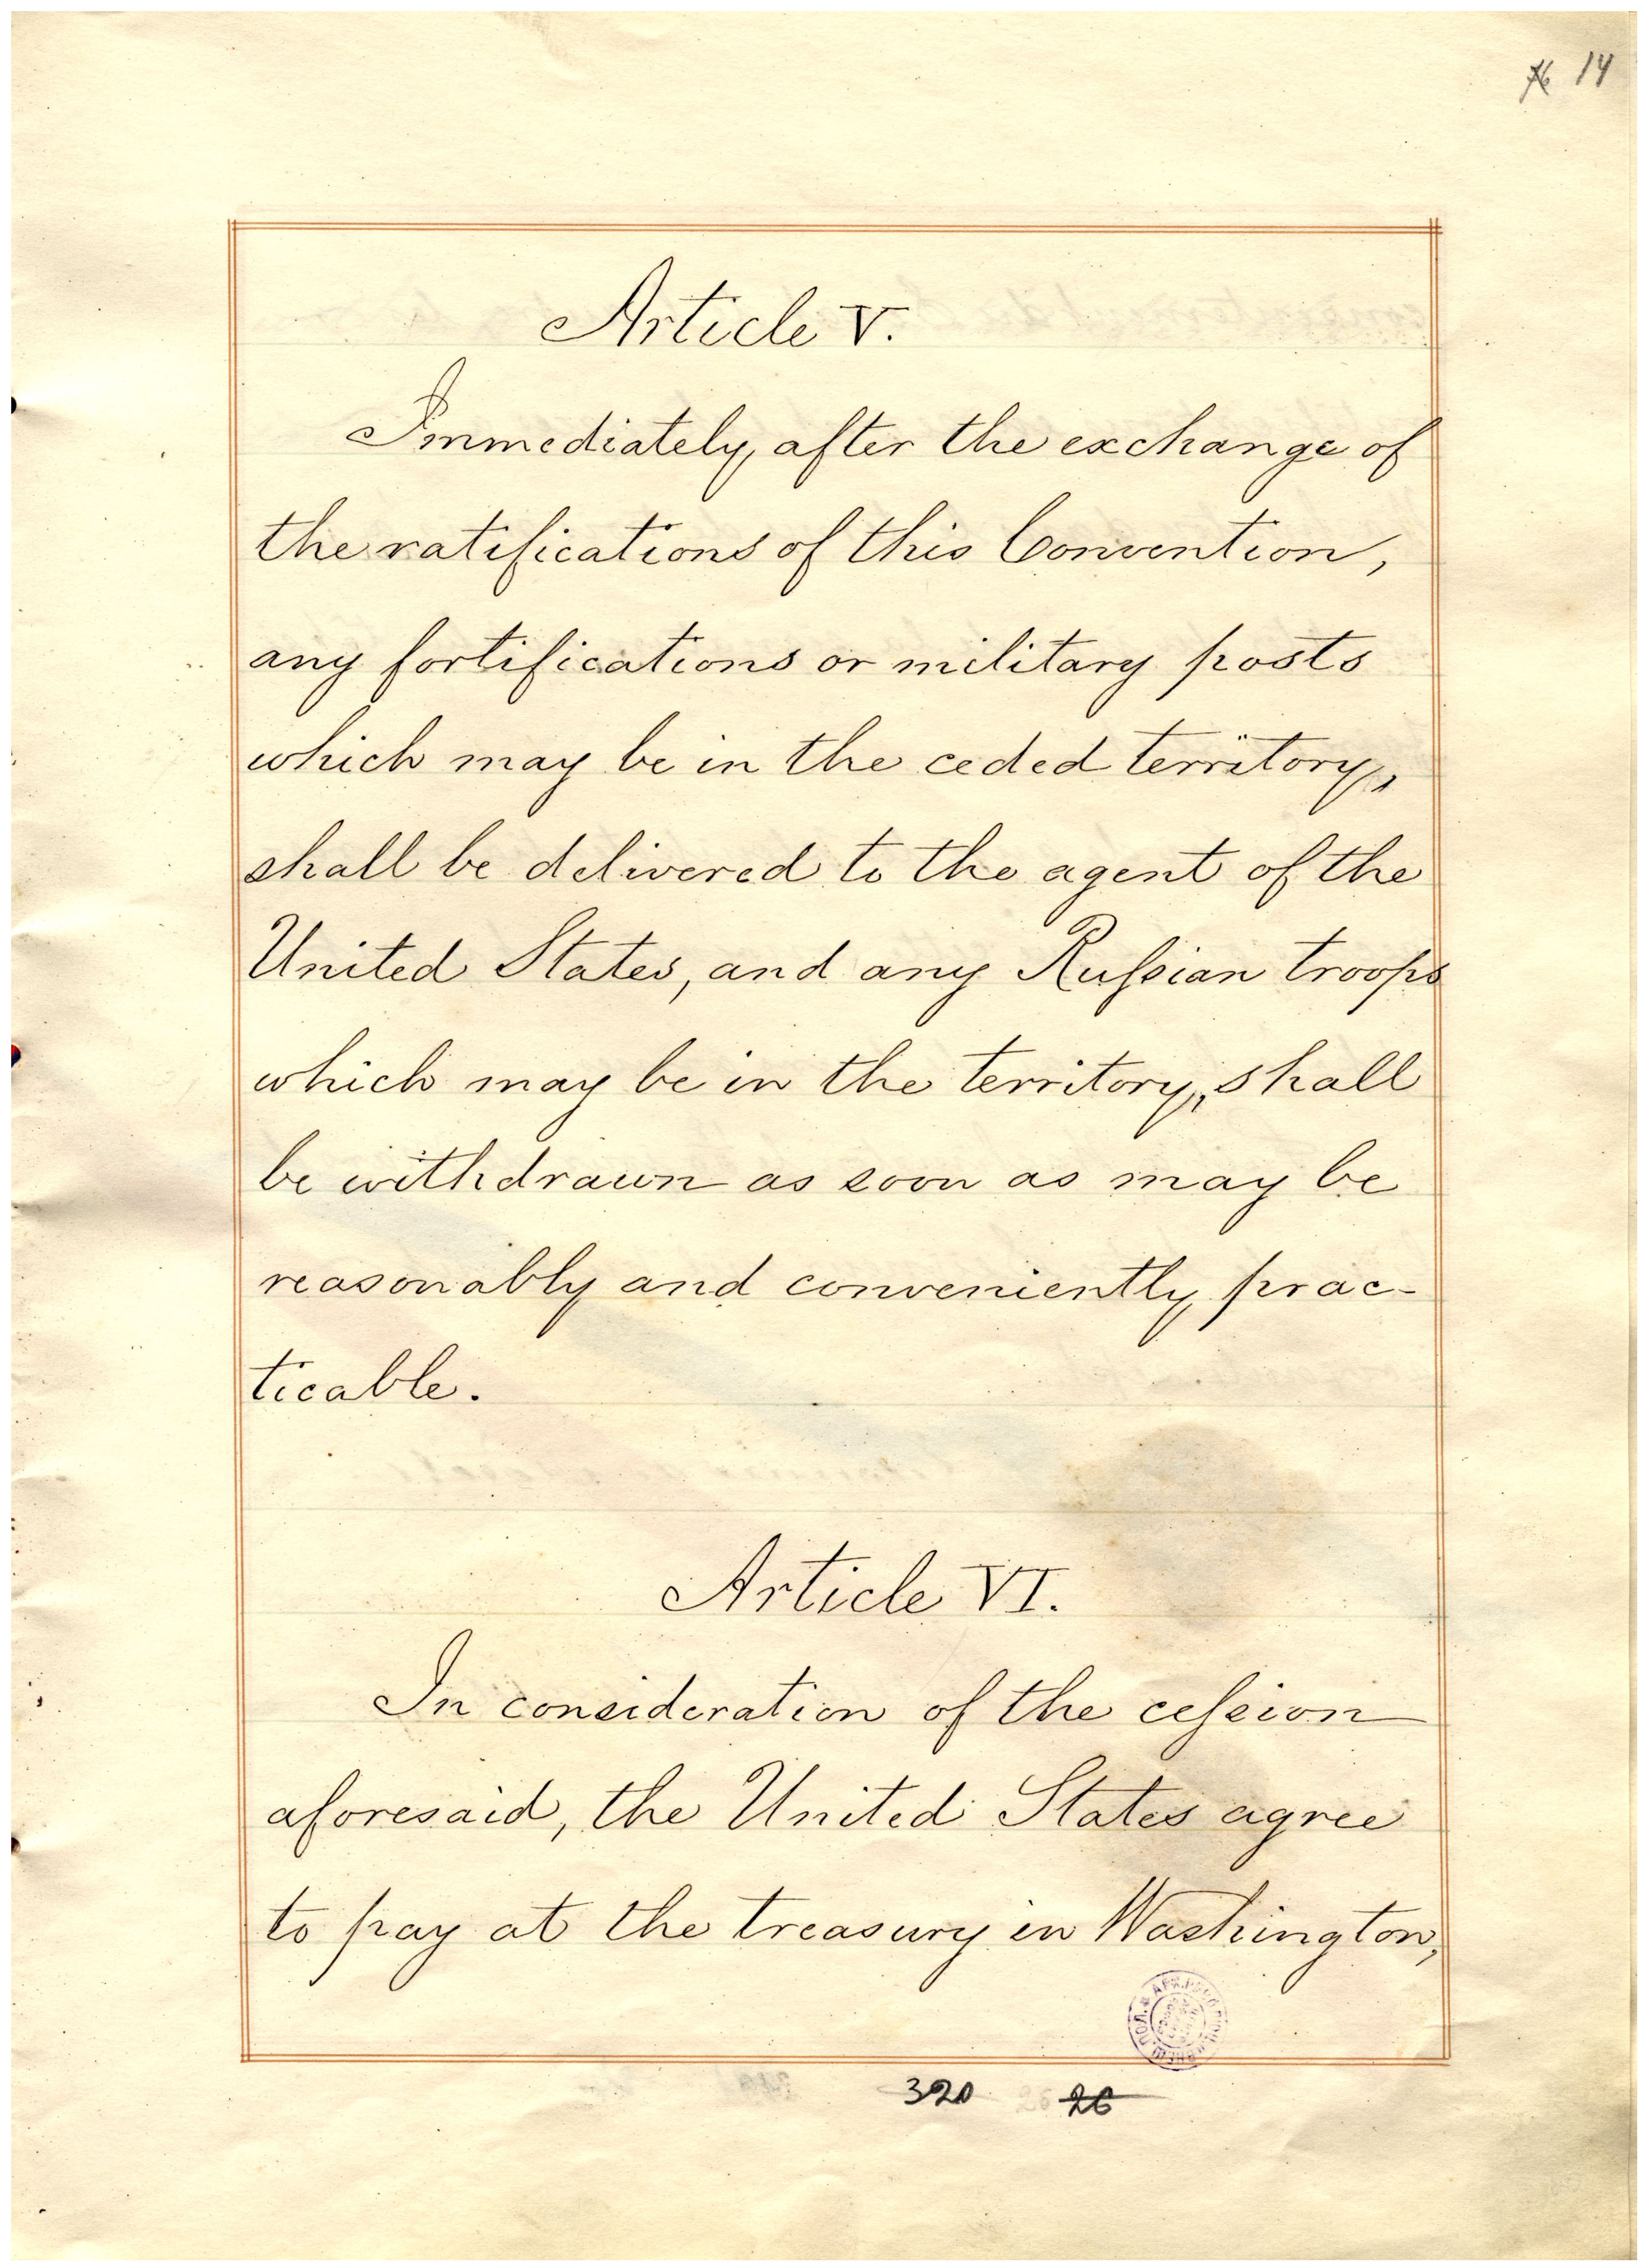 14
Article V.
Immediately after the exchange of
the ratifications of this Convention,
any fortifications or military posts
which may be in the ceded territory,
shall be delivered to the agent of the
United States, and any Ruſsian troops
which may be in the territory, shall
be withdrawn as soon as may be
reasonably and conveniently prac-
ticable.
Article VI.
In consideration of the ceſsion
aforesaid, the United States agree
to pay at the treasury in Washington,
320 26